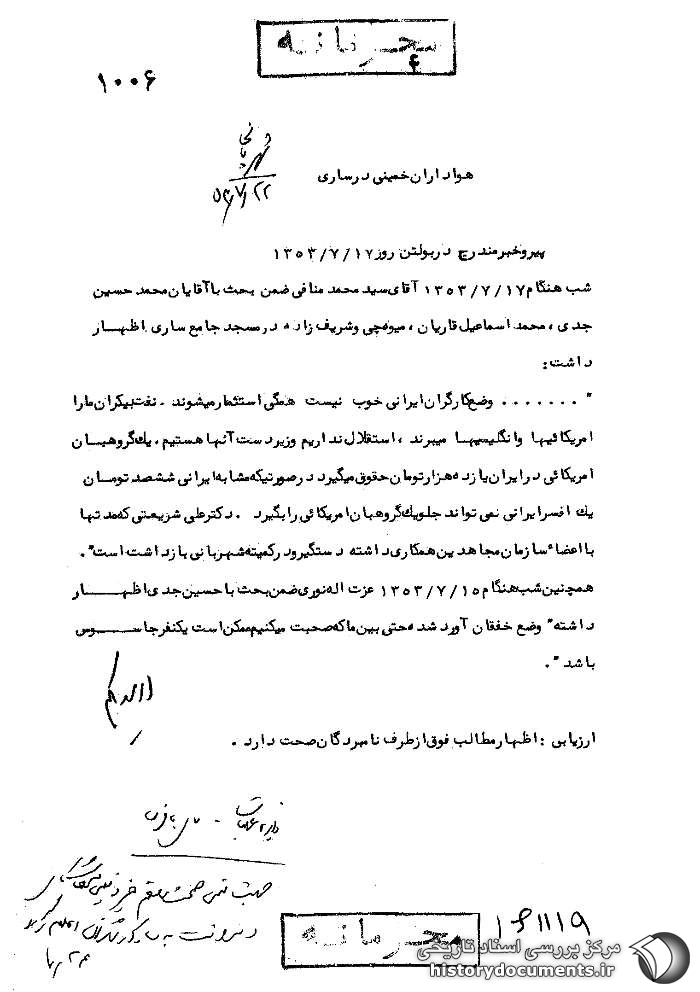 محرمانه
۱۰۰۶
شهربانی
۵۳/۷/۲۲
هواداران خمینی در ساری
پیرو خبر مندرج در بولتن روز ۱۳۵۳/۷/۱۷
شب هنگام ۱۳۵۳/۷/۱۷ آقای سید محمد منافی ضمن بحث با آقایان محمد حسین
جدی ، محمد اسماعیل قاریان ، میوه‌چی وشریف زاده در مسجد جامع ساری اظهار
داشت :
" ....... وضع کارگران ایرانی خوب نیست همگی استثمار میشوند . نفت بیکران ما را
امریکائیها وانگلیسیها میبرند ، استقلال نداریم وزیر دست آنها هستیم . یك گروهبان
امریکائی در ایران یازده هزار تومان حقوق میگیرد در صورتیکه مشابه ایرانی ششصد تومان
یك افسر ایرانی نمی تواند جلو یك گروهبان امریکائی را بگیرد . دکتر علی شریعتی که مدتها
با اعضاء سازمان مجاهدین همکاری داشته دستگیر ودر کمیته شهربانی بازداشت است" .
همچنین شب هنگام ۱۳۵۳/۷/۱۵ عزت اله نوری ضمن بحث با حسین جدی اظهار
داشته " وضع خفقان آور شده حتی بین ما که صحبت میکنیم ممکن است یکنفر جاسوس
باشد " .
ارزیابی : اظهار مطالب فوق از طرف نامبردگان صحت دارد .
۱۶۱۱۱۹
محرمانه
مرکز بررسی اسناد تاریخی
historydocuments.ir